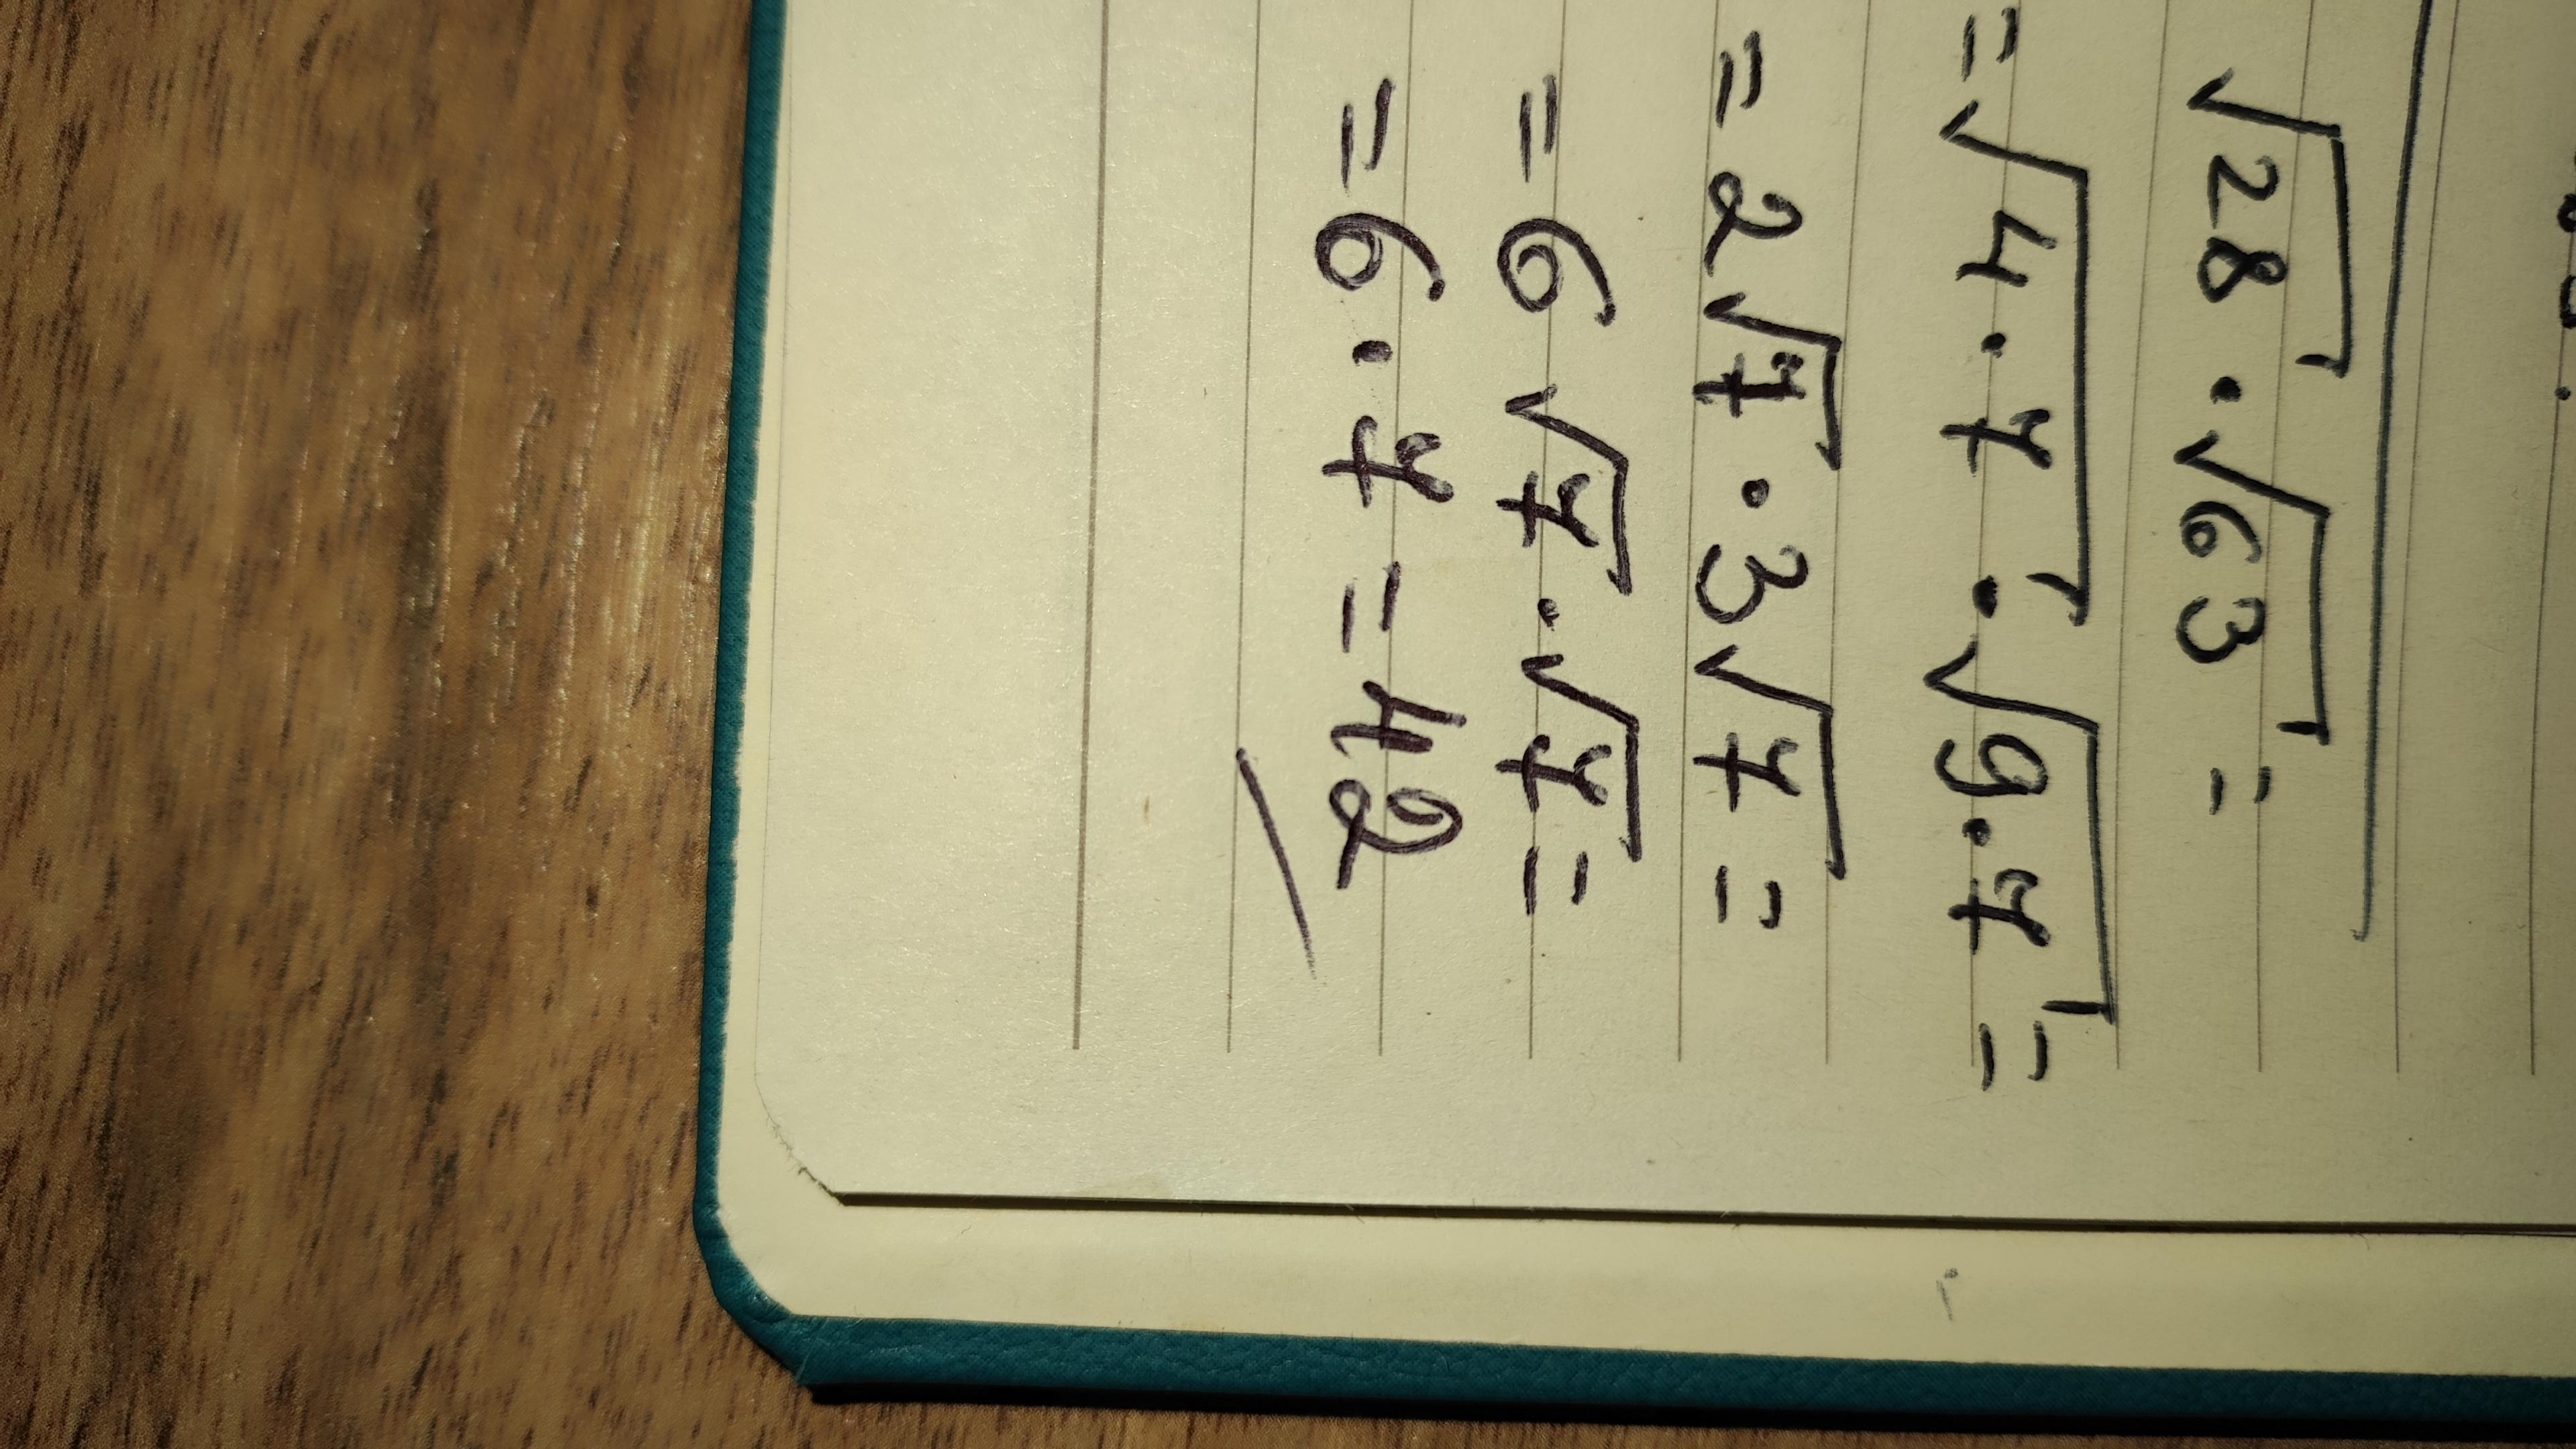 √28 · √63 =
= √4 · 7 · √9 · 7 =
= 2√7 · 3√7 =
= 6 √7 · √7 =
= 6 · 7 = 42